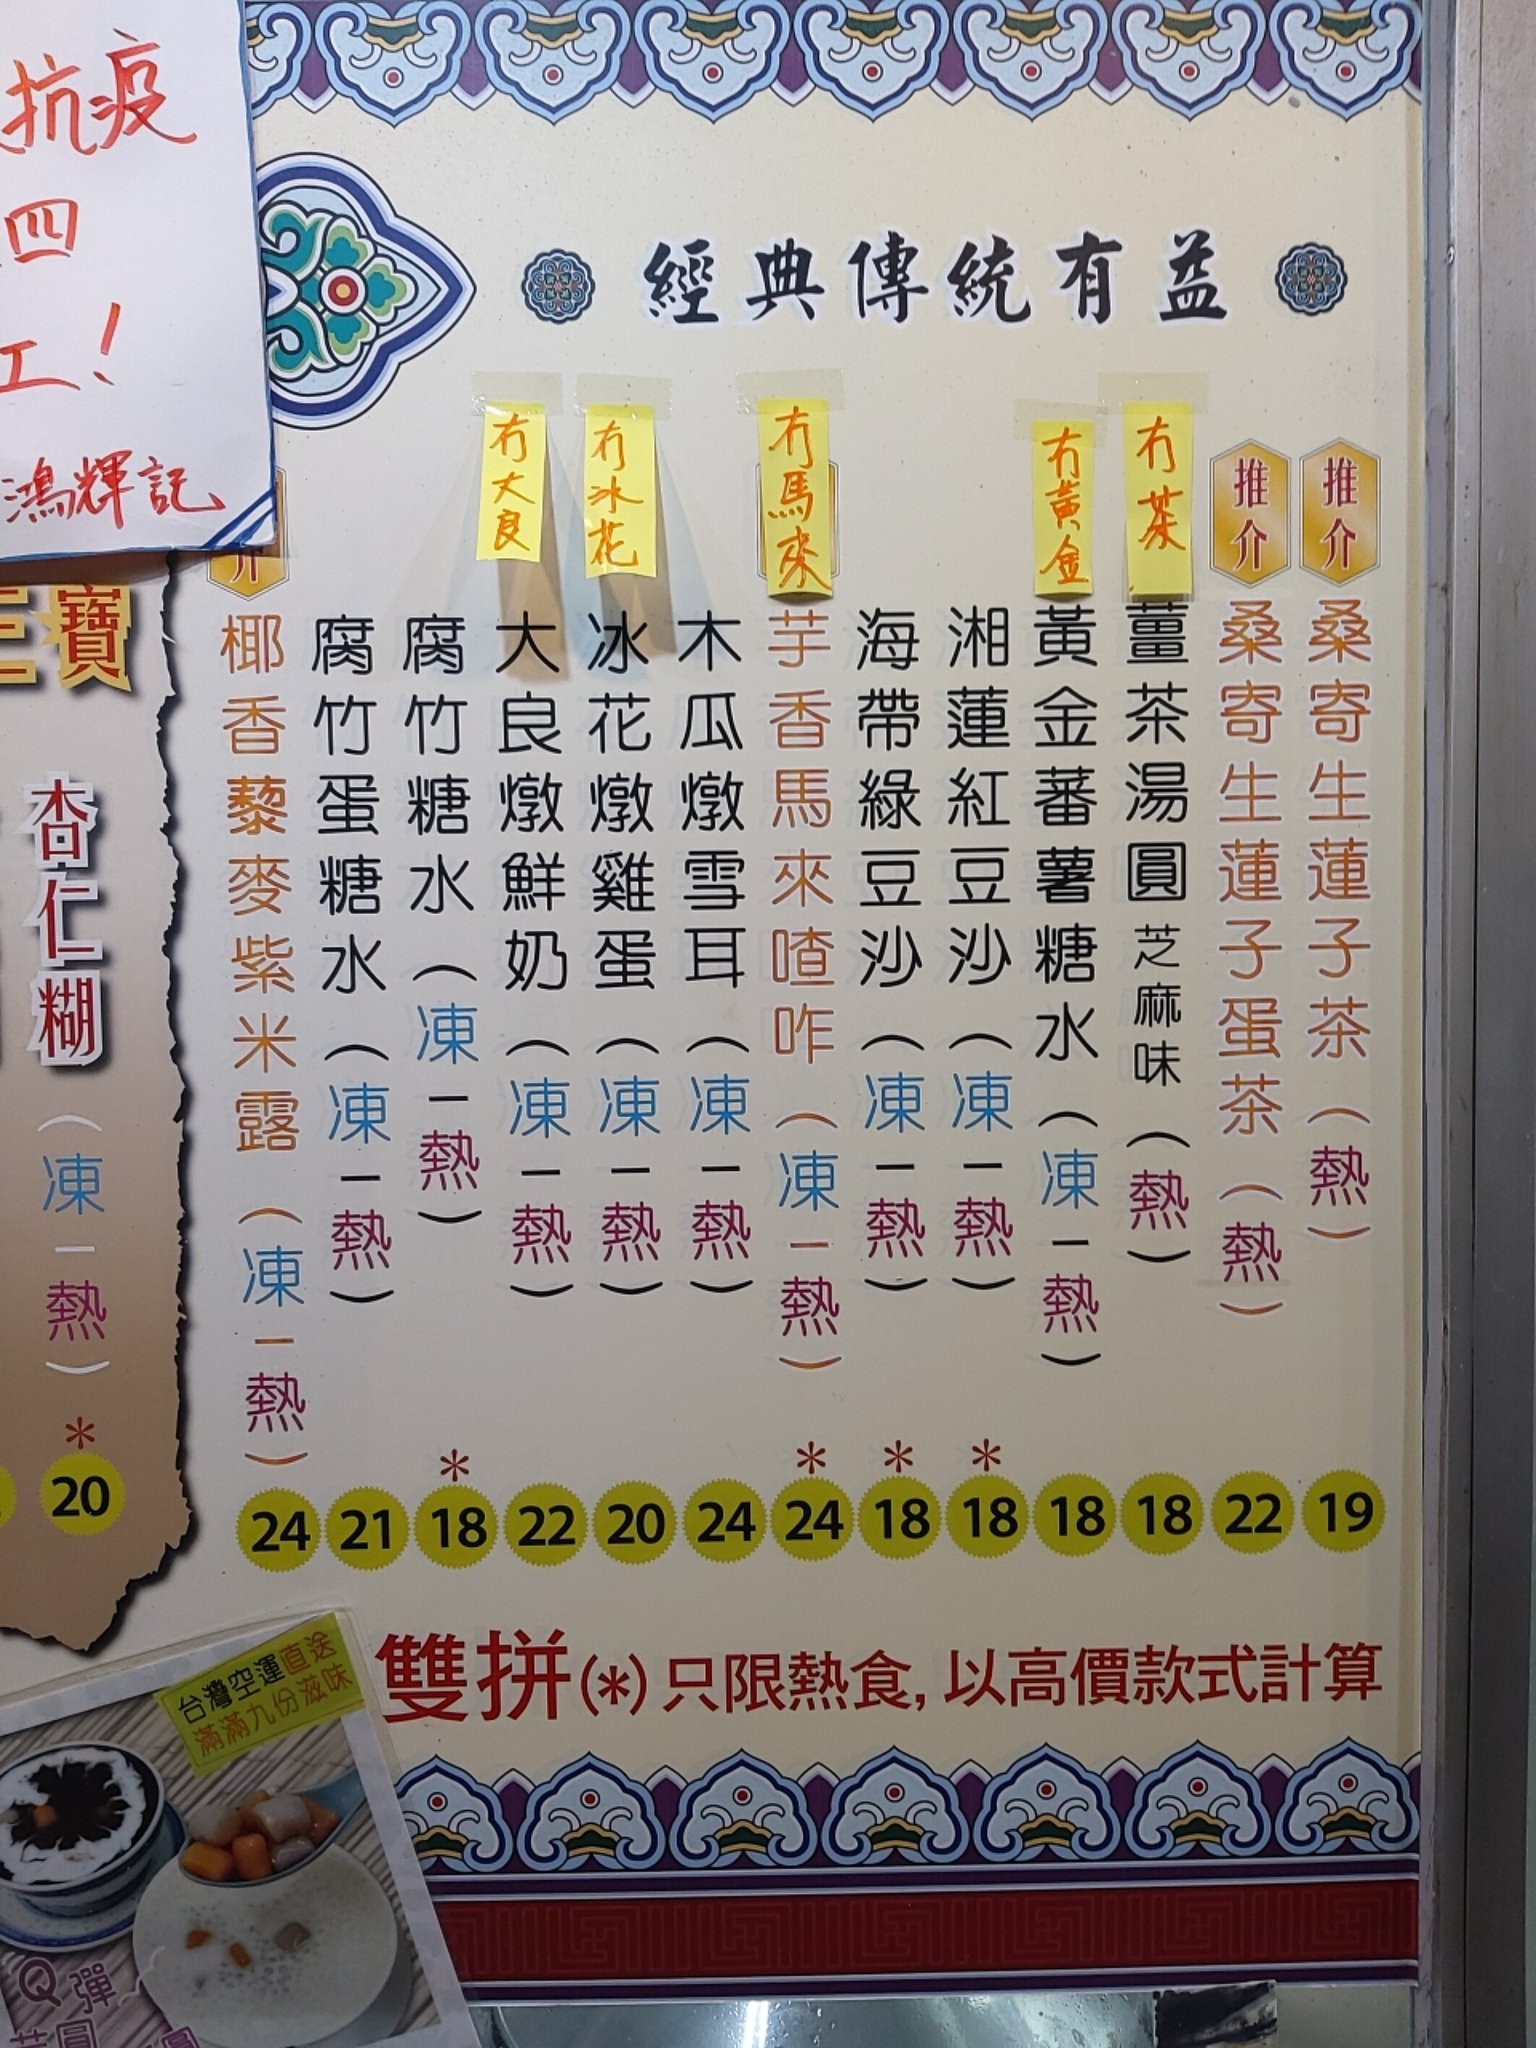 抗疫
四
工！
鴻輝記
經典傳統有益
冇大良
冇冰花
冇馬來
冇黃金
冇茶
推介
推介
介
桑寄生蓮子茶（熱）
19
桑寄生蓮子蛋茶（熱）
22
薑茶湯圓芝麻味（熱）
18
黃金蕃薯糖水（凍－熱）
18
湘蓮紅豆沙（凍－熱）
*
18
海帶綠豆沙（凍－熱）
*
18
芋香馬來喳咋（凍－熱）
*
24
木瓜燉雪耳（凍－熱）
24
冰花燉雞蛋（凍－熱）
20
大良燉鮮奶（凍－熱）
22
腐竹糖水（凍－熱）
*
18
腐竹蛋糖水（凍－熱）
21
椰香藜麥紫米露（凍－熱）
24
寶
杏仁糊（凍－熱）
*
20
雙拼(*)只限熱食, 以高價款式計算
台灣空運直送
滿滿九份滋味
Q彈
圓